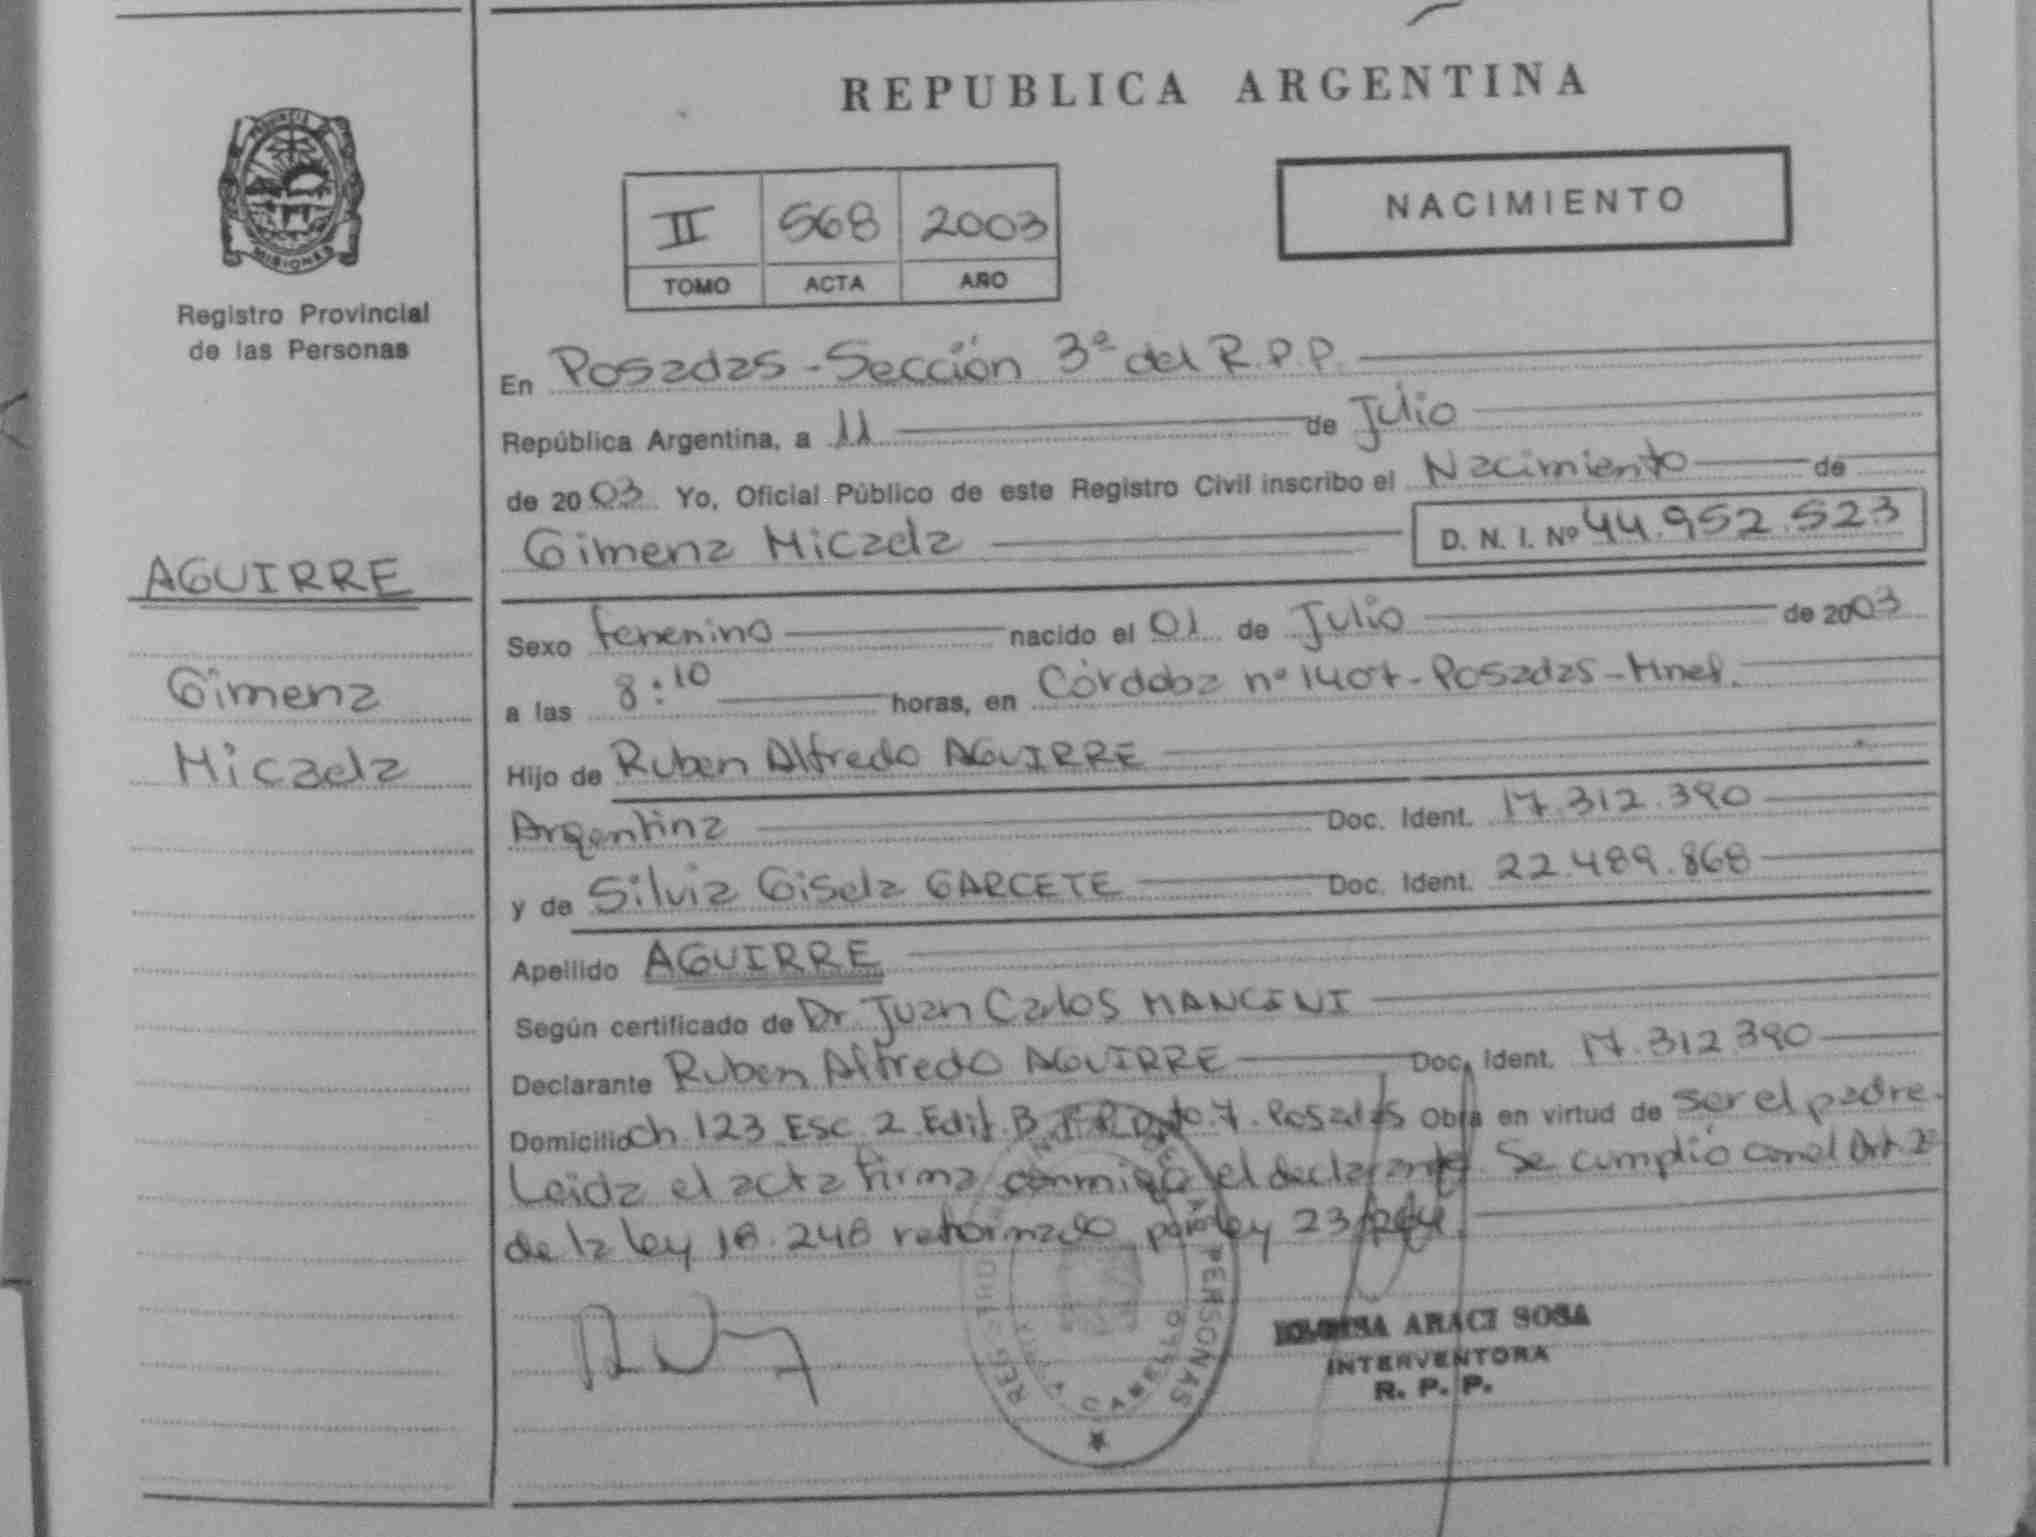 REPUBLICA ARGENTINA
PROVINCIA DE
MISIONES
Registro Provincial
de las Personas
II 568 2003
TOMO ACTA AÑO
NACIMIENTO
En Posadas - Sección 3ª del R.P.P.
República Argentina, a 11 de Julio
de 2003 Yo, Oficial Público de este Registro Civil inscribo el Nacimiento de
Gimena Micaela D. N. I. Nº 44.952.523
AGUIRRE
Gimena
Micaela
Sexo femenino nacido el 01 de Julio de 2003
a las 8:10 horas, en Córdoba nº 1407 - Posadas - Mnes.
Hijo de Ruben Alfredo AGUIRRE
Argentina Doc. Ident. 17.312.390
y de Silvia Gisela GARCETE Doc. Ident. 22.489.868
Apellido AGUIRRE
Según certificado de Dr. Juan Carlos MANCINI
Declarante Ruben Alfredo AGUIRRE Doc. Ident. 17.312.390
Domicilio Ch. 123 Esc. 2 Edif. B 7. Posadas Obra en virtud de ser el padre.
Leida el acta firma conmigo el declarante. Se cumplió con el Art. 2º
de la ley 18.248 reformado por ley 23
REGISTRO PERSONAS
ARACI SOSA
INTERVENTORA
R. P. P.